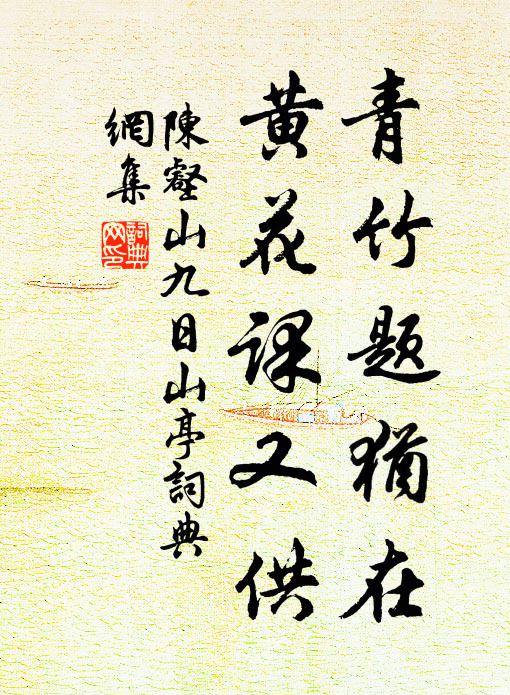 青竹题猶在
黄花課又供
陳壑山九日山亭詞典
網集
詞典
网印